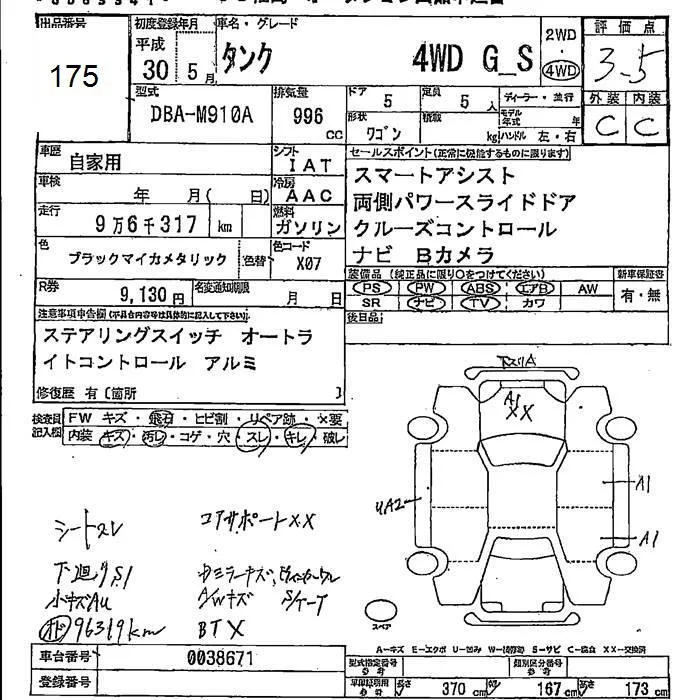 出品番号 初度登録年月 車名・グレード 評価点
175 平成 30 5月 タンク 4WD G_S 2WD・4WD 3.5
型式 排気量 ドア 定員 ディーラー・並行 外装 内装
DBA-M910A 996 cc 5 5人 モデル年式 年 C C
形状 ワゴン 積載 kg ハンドル 左・右
車歴 自家用 シフト IAT セールスポイント(正常に機能するものに限ります)
車検 年 月( 日) 冷房 AAC スマートアシスト
両側パワースライドドア
走行 9万6千317 km 燃料 ガソリン クルーズコントロール
ナビ Bカメラ
色 ブラックマイカメタリック 色替 色コード X07
装備品(純正品に限り○をつけてください) 新車保証書
PS PW ABS エアB AW 有・無
SR ナビ TV カワ
R券 9,130円 名変通知期限 月 日 後日品
注意事項申告欄(不具合内容等は具体的に記入して下さい。)
ステアリングスイッチ オートラ
イトコントロール アルミ
修復歴 有〔箇所 〕
検査員記入欄 FW キズ・飛石・ヒビ割・リペア跡・×要
内装 キズ・汚レ・コゲ・穴・スレ・キレ・破レ
下スリA
A1
XX
UA2
A1
A1
シートスレ コアサポートXX
下廻りS1
小キズAU A/Wキズ S/ケース
オド 96319km BTX
スペア
A-キズ E-エクボ U-凹み W-補修跡 S-サビ C-腐食 XX-交換済
車台番号 0038671 型式指定番号 類別区分番号
登録番号 長さ 370cm 幅 167cm 高さ 173cm